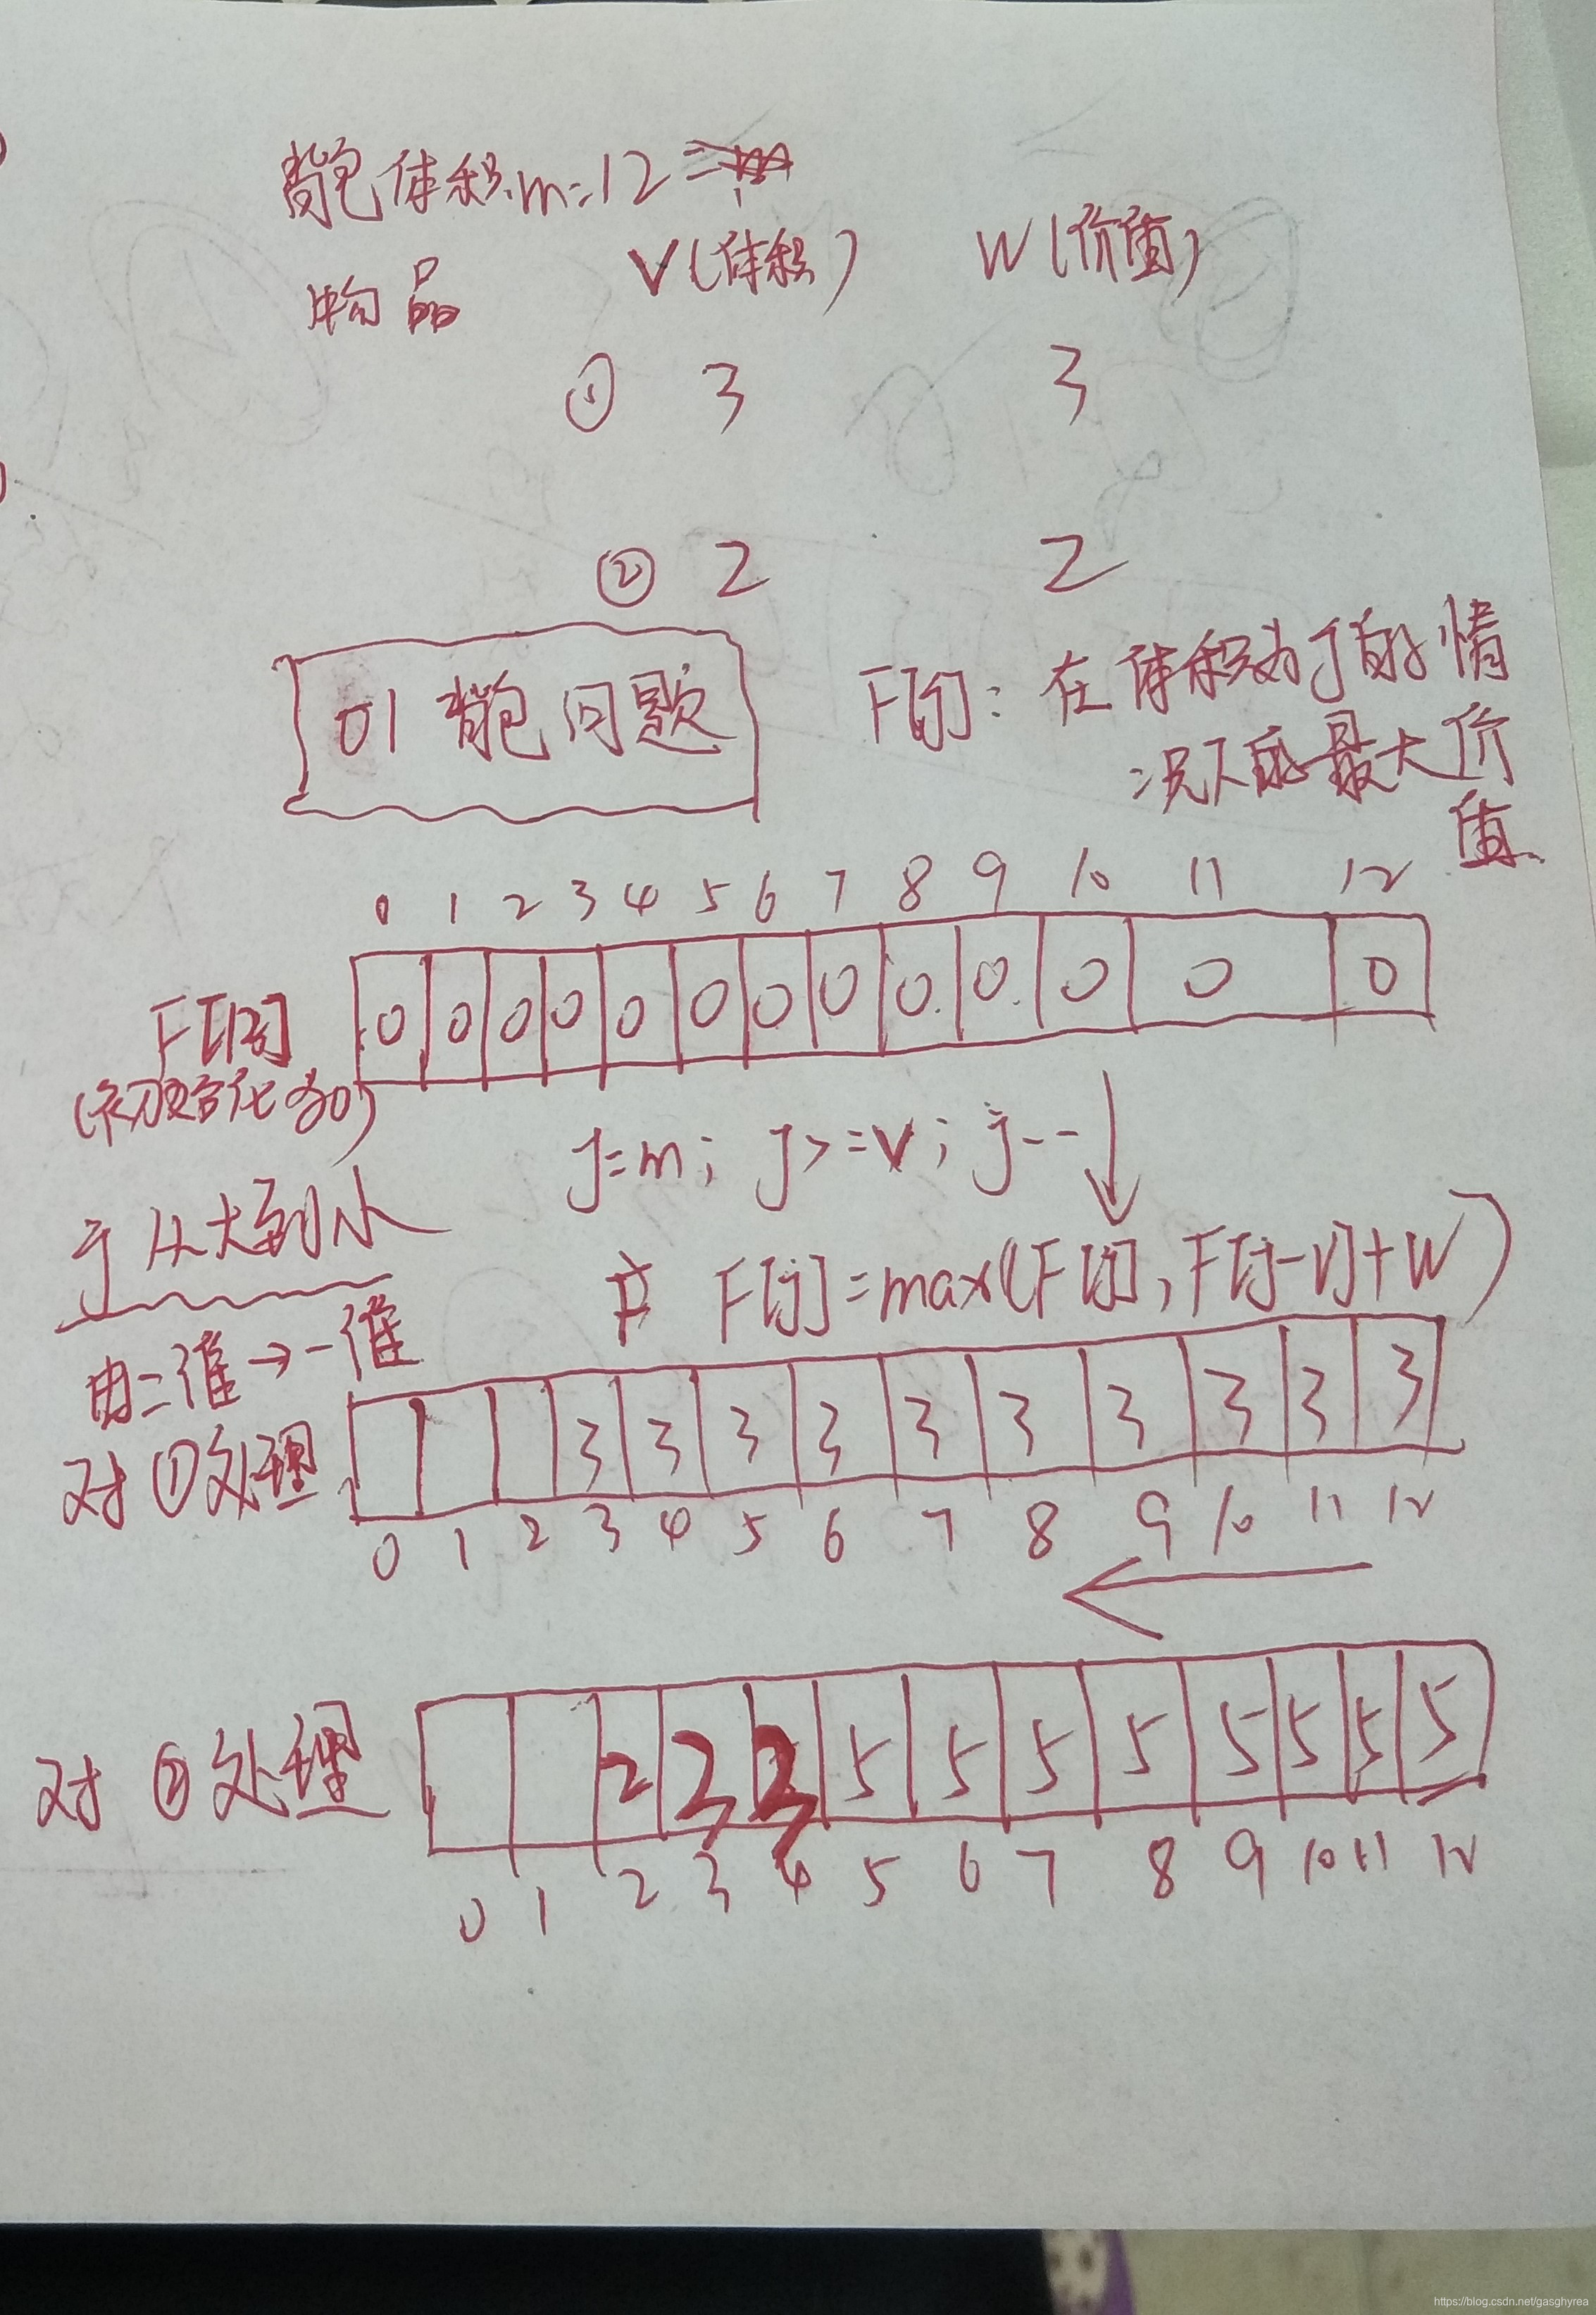 背包体积m=12
物品 V(体积) W(价值)
① 3 3
② 2 2
01背包问题
F[j]: 在体积为J的情
况下的最大价
值
0 1 2 3 4 5 6 7 8 9 10 11 12
F[12] 0 0 0 0 0 0 0 0 0 0 0 0 0
(初始化为0)
J=m; J>=V; j--
j从大到小
F[j]=max(F[j], F[j-V]+W)
由二维→一维
对①处理 3 3 3 3 3 3 3 3 3 3
0 1 2 3 4 5 6 7 8 9 10 11 12
对②处理 2 3 3 5 5 5 5 5 5 5 5
0 1 2 3 4 5 6 7 8 9 10 11 12
https://blog.csdn.net/gasghyrea